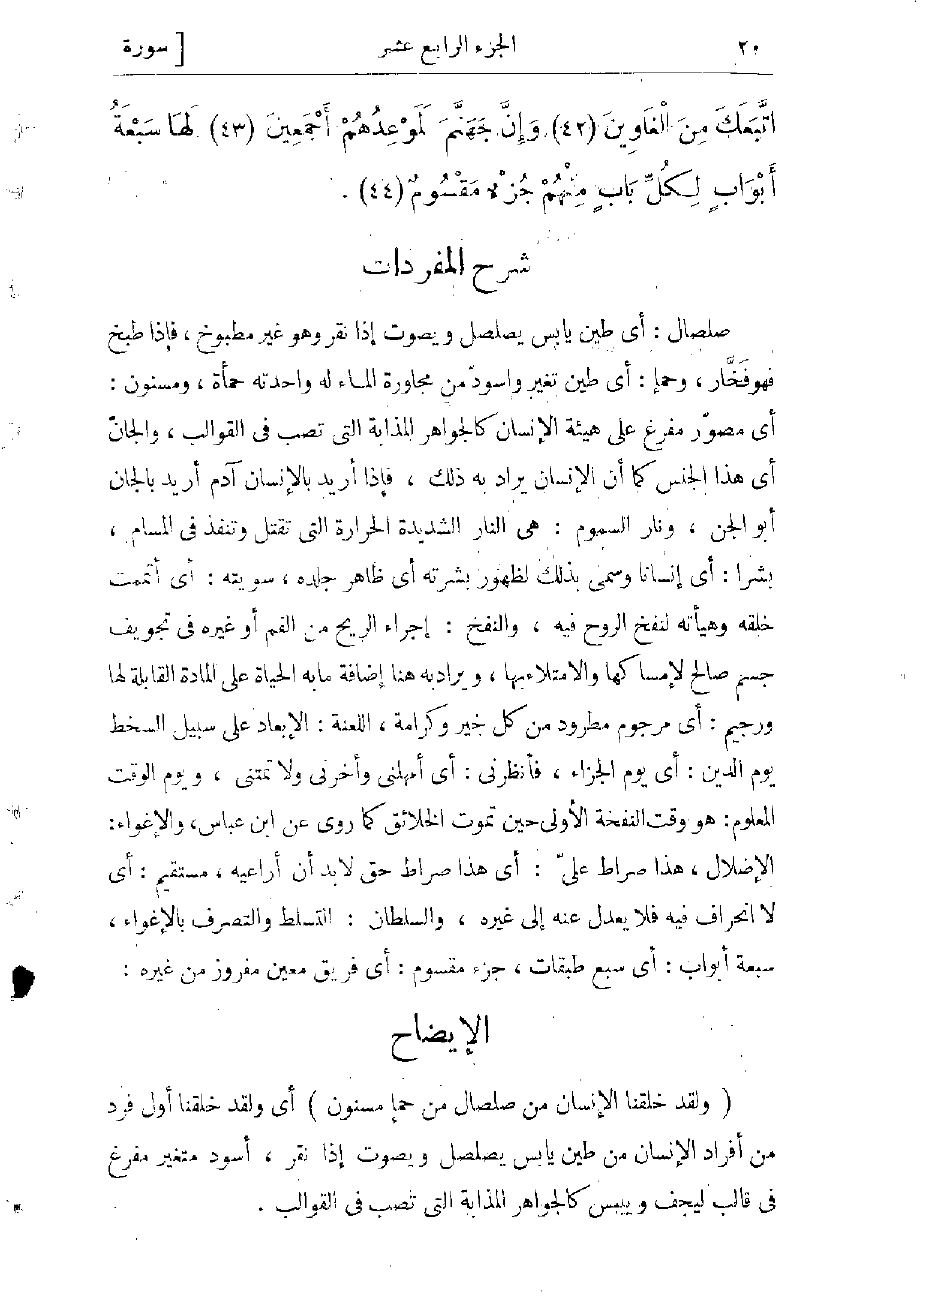 ٢٠ الجزء الرابع عشر [ سورة
اتَّبَعَكَ مِنَ الْغَاوِينَ (٤٢) وَإِنَّ جَهَنَّمَ لَمَوْعِدُهُمْ أَجْمَعِينَ (٤٣) لَهَا سَبْعَةُ
أَبْوَابٍ لِكُلِّ بَابٍ مِنْهُمْ جُزْءٌ مَقْسُومٌ (٤٤) .
شرح المفردات
صلصال : أى طين يابس يصلصل ويصوت إذا نقر وهو غير مطبوخ ، فإذا طبخ
فهو فَخَّار ، وحمإ : أى طين تغير واسودّ من مجاورة الماء له واحدته حمأة ، ومسنون :
أى مصوّر مفرغ على هيئة الإنسان كالجواهر المذابة التى تصب فى القوالب ، والجانّ
أى هذا الجنس كما أن الإنسان يراد به ذلك ، فإذا أريد بالإنسان آدم أريد بالجان
أبو الجن ، ونار السموم : هى النار الشديدة الحرارة التى تقتل وتنفذ فى المسام ،
بشرا : أى إنسانا وسمى بذلك لظهور بشرته أى ظاهر جلده ، سويته : أى أتممت
خلقه وهيأته لنفخ الروح فيه ، والنفخ : إجراء الريح من الفم أو غيره فى تجويف
جسم صالح لإمساكها والامتلاء بها ، ويراد به هنا إضافة ما به الحياة على المادة القابلة لها
ورجيم : أى مرجوم مطرود من كل خير وكرامة ، اللعنة : الإبعاد على سبيل السخط
يوم الدين : أى يوم الجزاء ، فأنظرنى : أى أمهلنى وأخرنى ولا تمتنى ، ويوم الوقت
المعلوم : هو وقت النفخة الأولى حين تموت الخلائق كما روى عن ابن عباس، والإغواء :
الإضلال ، هذا صراط علىّ : أى هذا صراط حق لابد أن أراعيه ، مستقيم : أى
لا انحراف فيه فلا يعدل عنه إلى غيره ، والسلطان : التسلط والتصرف بالإغواء ،
سبعة أبواب : أى سبع طبقات ، جزء مقسوم : أى فريق معين مفروز من غيره :
الإيضاح
( ولقد خلقنا الإنسان من صلصال من حمإ مسنون ) أى ولقد خلقنا أول فرد
من أفراد الإنسان من طين يابس يصلصل ويصوت إذا نقر ، أسود متغير مفرغ
فى قالب ليجف وييبس كالجواهر المذابة التى تصب فى القوالب .